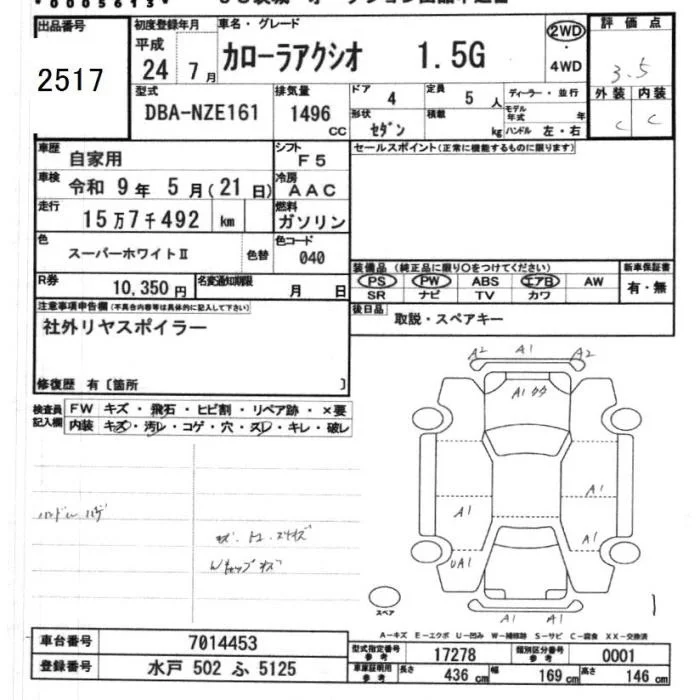 *0005613*
出品番号
2517
初度登録年月
平成
24 年 7 月
車名・グレード
カローラアクシオ 1.5G
2WD
・
4WD
評価点
3.5
外装 内装
C C
型式
DBA-NZE161
排気量
1496
CC
ドア
4
定員
5 人
形状
セダン
積載
kg
ディーラー・並行
モデル年式
年
ハンドル 左・右
車歴
自家用
シフト
F5
車検
令和 9 年 5 月 ( 21 日 )
冷房
AAC
走行
15 万 7 千 492 km
燃料
ガソリン
色
スーパーホワイトⅡ
色替
色コード
040
R券
10,350 円
名変通知期限
月 日
セールスポイント(正常に機能するものに限ります)
装備品 (純正品に限り○をつけてください)
PS PW ABS エアB AW
SR ナビ TV カワ
新車保証書
有・無
後日品
取説・スペアキー
注意事項申告欄(不具合内容等は具体的に記入して下さい)
社外リヤスポイラー
修復歴 有〔箇所 〕
検査員記入欄
FW キズ・飛石・ヒビ割・リペア跡・×要
内装 キズ・汚レ・コゲ・穴・スレ・キレ・破レ
A2 A1 A2
A1
A1
A1
A1
UA1
A1 A1
スペア
A-キズ E-エクボ U-凹み W-補修跡 S-サビ C-腐食 XX-交換済
車台番号
7014453
登録番号
水戸 502 ふ 5125
型式指定番号
参考
17278
類別区分番号
参考
0001
車庫証明用
参考
長さ
436 cm
幅
169 cm
高さ
146 cm